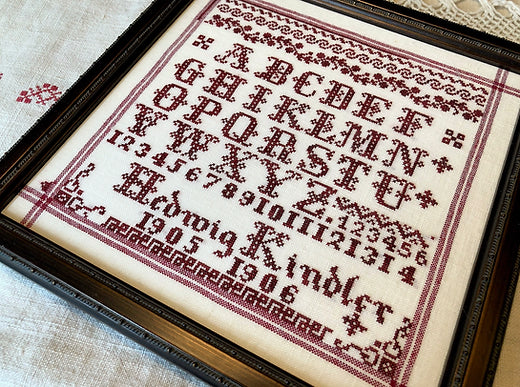 ABCDEF
GHIKLMN
OPQRSTU
VWXYZ. 123456
1234567891011121314
Hedwig Kindler
1905 1906